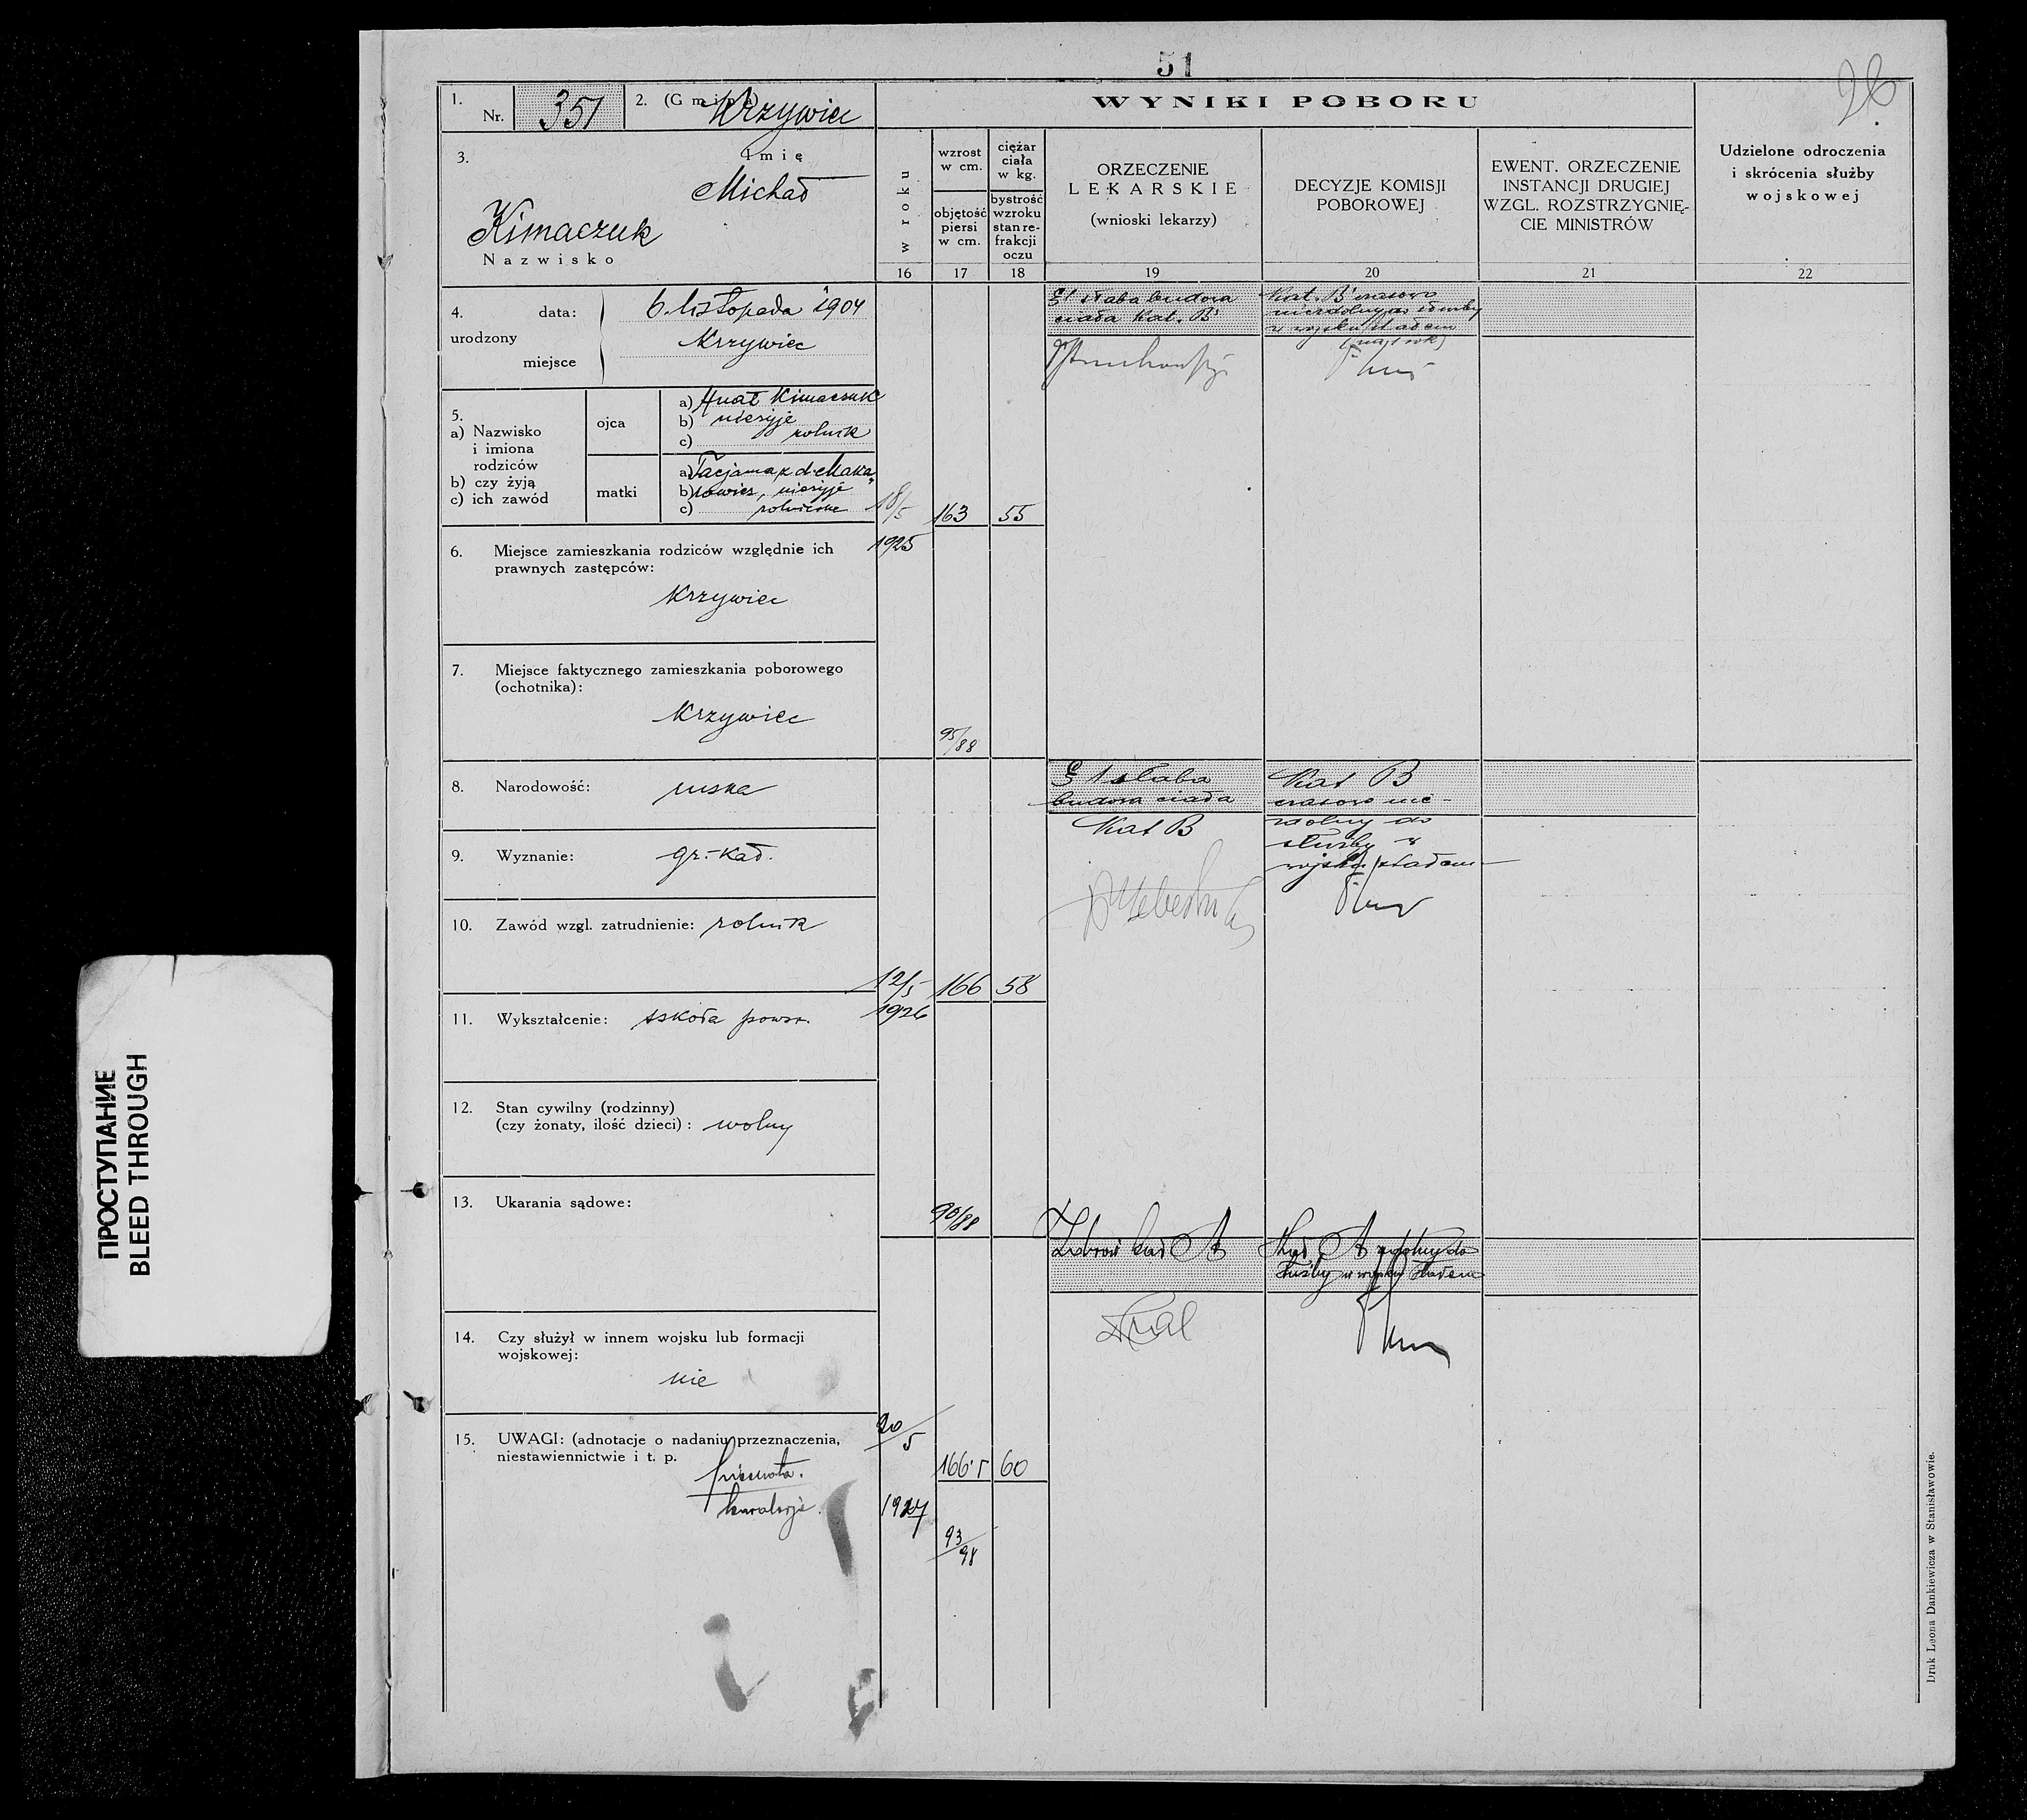 51
26
1. Nr. 351
2. (Gmina) Krzywiec
3. Imię
Michał
Kimaczuk
Nazwisko
4. urodzony
data: 6. listopada 1904
miejsce Krzywiec
5.
a) Nazwisko i imiona rodziców
b) czy żyją
c) ich zawód
ojca
a) Hnat Kimaczuk
b) nieżyje
c) rolnik
matki
a) Tacjanna z d. Maka„
b) rowicz, nieżyje
c) rolniczka
6. Miejsce zamieszkania rodziców względnie ich
prawnych zastępców:
Krzywiec
7. Miejsce faktycznego zamieszkania poborowego
(ochotnika):
Krzywiec
8. Narodowość: ruska
9. Wyznanie: gr.-kat.
10. Zawód wzgl. zatrudnienie: rolnik
11. Wykształcenie: szkoła powsz.
12. Stan cywilny (rodzinny)
(czy żonaty, ilość dzieci): wolny
13. Ukarania sądowe:
14. Czy służył w innem wojsku lub formacji
wojskowej:
nie
15. UWAGI: (adnotacje o nadaniu przeznaczenia,
niestawiennictwie i t. p.
piechota.
kawalerja.
WYNIKI POBORU
w roku
16
wzrost
w cm.
objętość
piersi
w cm.
17
ciężar
ciała
w kg.
bystrość
wzroku
stan re-
frakcji
oczu
18
ORZECZENIE
LEKARSKIE
(wnioski lekarzy)
19
DECYZJE KOMISJI
POBOROWEJ
20
EWENT. ORZECZENIE
INSTANCJI DRUGIEJ
WZGL. ROZSTRZYGNIĘ-
CIE MINISTRÓW
21
Udzielone odroczenia
i skrócenia służby
wojskowej
22
18/5
1925
163
55
95/88
§1 słaba budowa
ciała Kat. B
Kat. B czasowo
niezdolny do służby
w wojsku stałem
(na 1 rok)
12/5
1926
166
58
90/88
§ 1 słaba
budowa ciała
Kat B
Kat B
czasowo nie-
zdolny do
służby w
wojsku stałem
20/5
1927
166·5
60
93/98
Zdrów kat A
Kat A zdolny do
służby w wojsku stałem
Druk Leona Dankiewicza w Stanisławowie.
ПРОСТУПАНИЕ
BLEED THROUGH